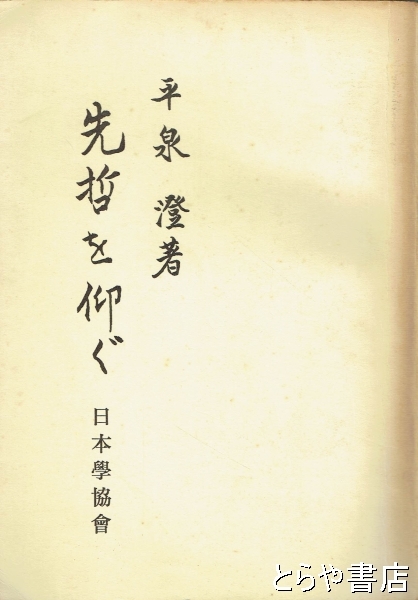 平泉澄著
先哲を仰ぐ
日本學協會
とらや書店